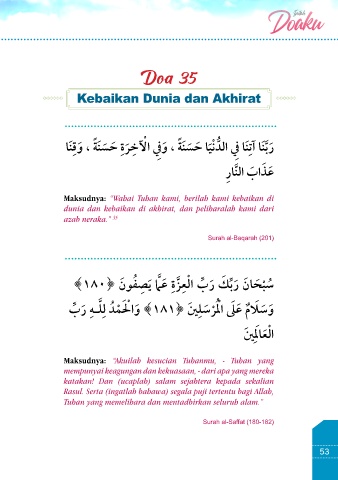 Doaku
Doa 35
Kebaikan Dunia dan Akhirat
رَبَّنَا آتِنَا فِي الدُّنْيَا حَسَنَةً ، وَفِي الْآخِرَةِ حَسَنَةً ، وَقِنَا
عَذَابَ النَّارِ
Maksudnya: "Wahai Tuhan kami, berilah kami kebaikan di
dunia dan kebaikan di akhirat, dan peliharalah kami dari
azab neraka."
Surah al-Baqarah (201)
سُبْحَانَ رَبِّكَ رَبِّ الْعِزَّةِ عَمَّا يَصِفُونَ ﴿١٨٠﴾
وَسَلَامٌ عَلَى الْمُرْسَلِينَ ﴿١٨١﴾ وَالْحَمْدُ لِلَّـهِ رَبِّ
الْعَالَمِينَ
Maksudnya: "Akuilah kesucian Tuhanmu, - Tuhan yang
mempunyai keagungan dan kekuasaan, - dari apa yang mereka
katakan! Dan (ucaplah) salam sejahtera kepada sekalian
Rasul. Serta (ingatlah bahawa) segala puji tertentu bagi Allah,
Tuhan yang memelihara dan mentadbirkan seluruh alam."
Surah al-Saffat (180-182)
53